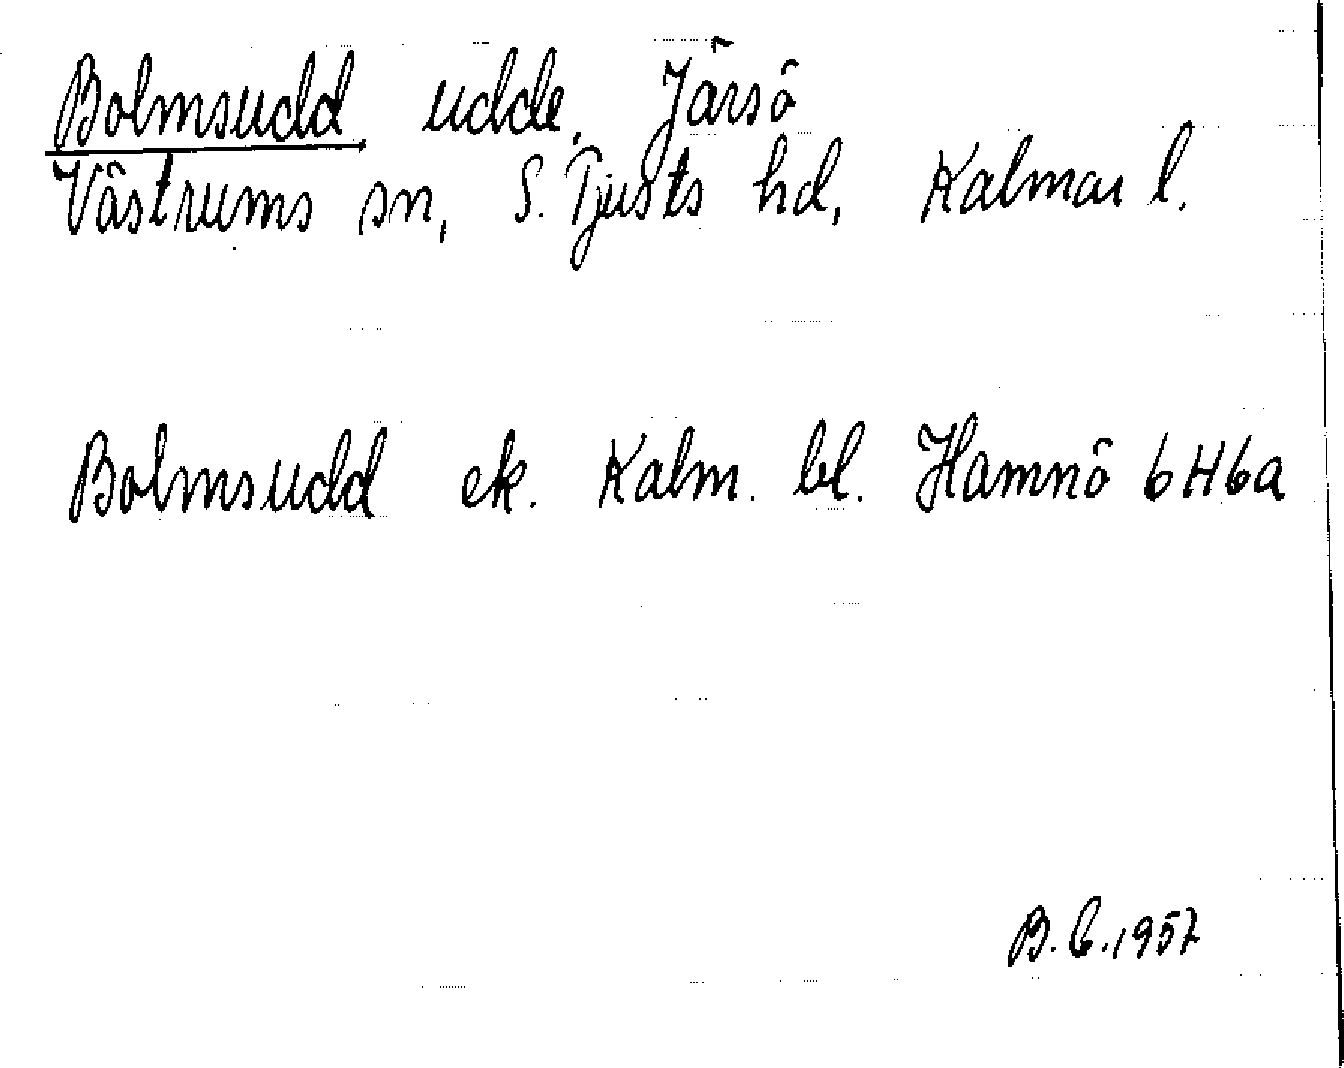 Bolmsudd, udde, Järsö
Västrums sn, S. Tjusts hd, Kalmar l.
Bolmsudd ek. Kalm. bl. Hamnö 6H6a
B. C. 1957